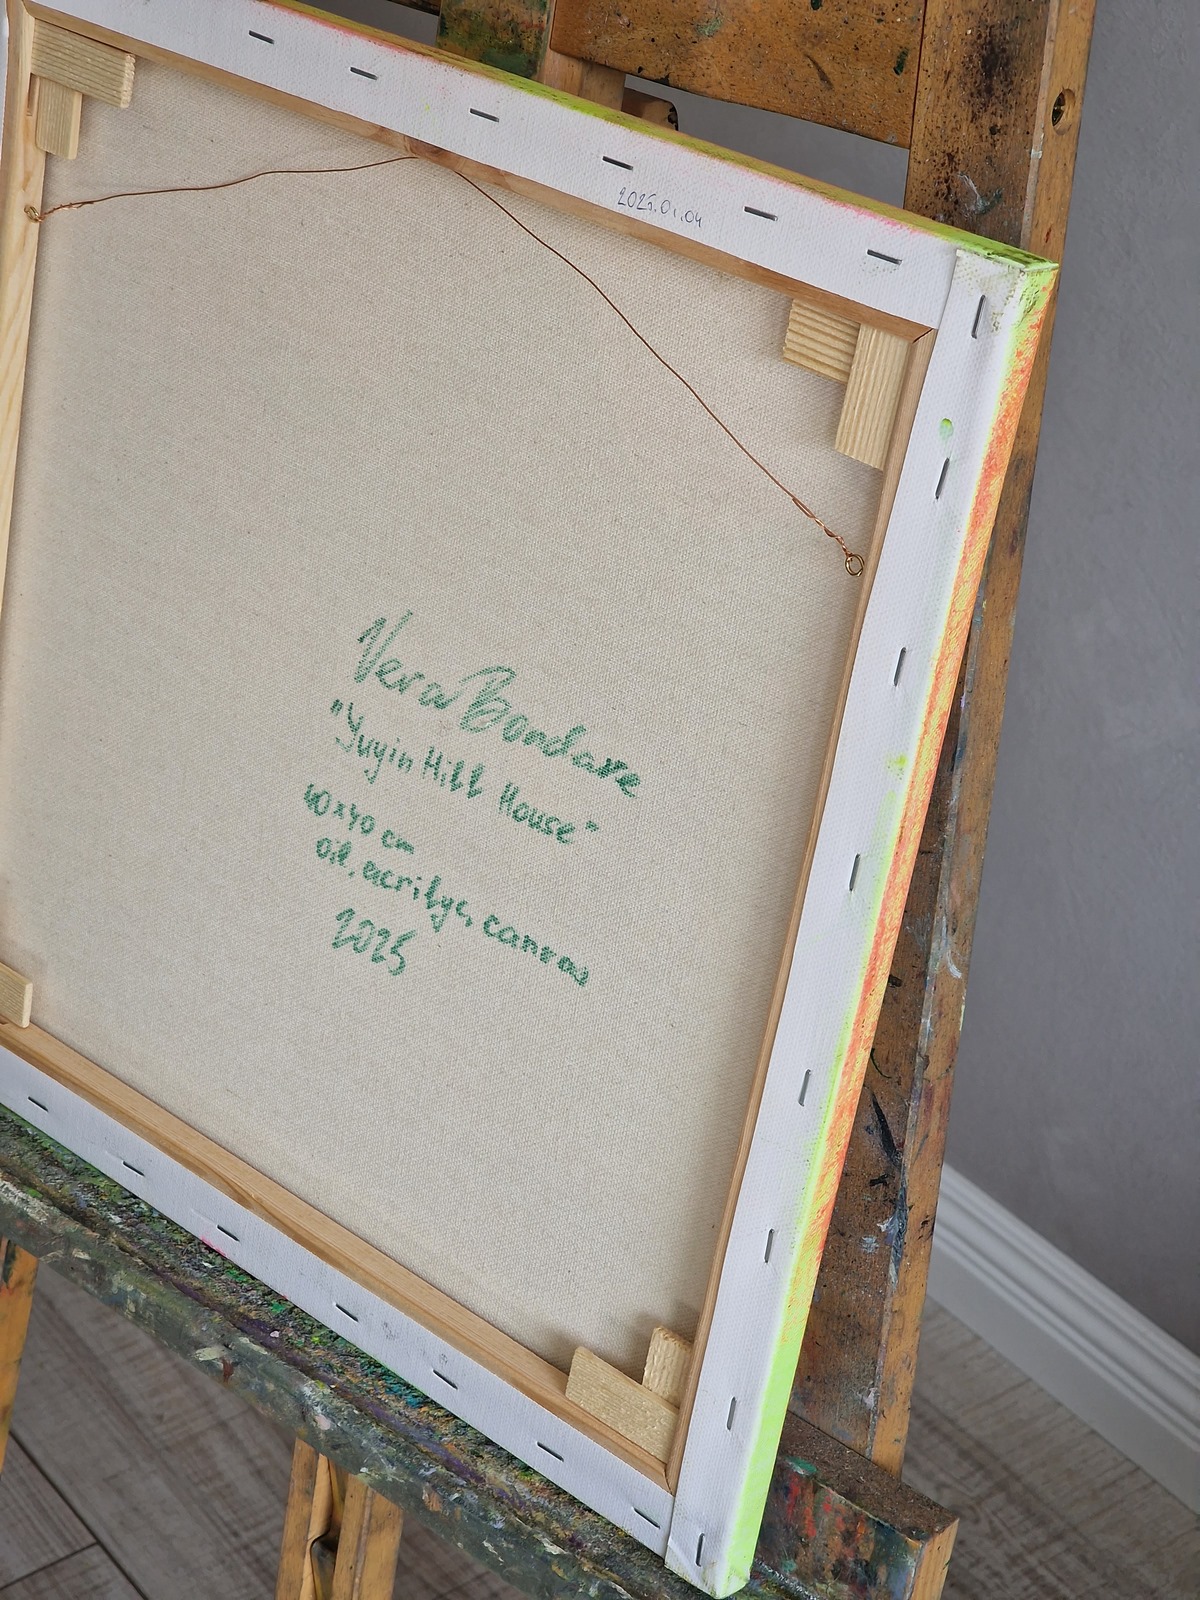 2025.01.04
Vera Bondare
"Yuyin Hill House"
40x40 cm
oil, acrilyc, canvas
2025